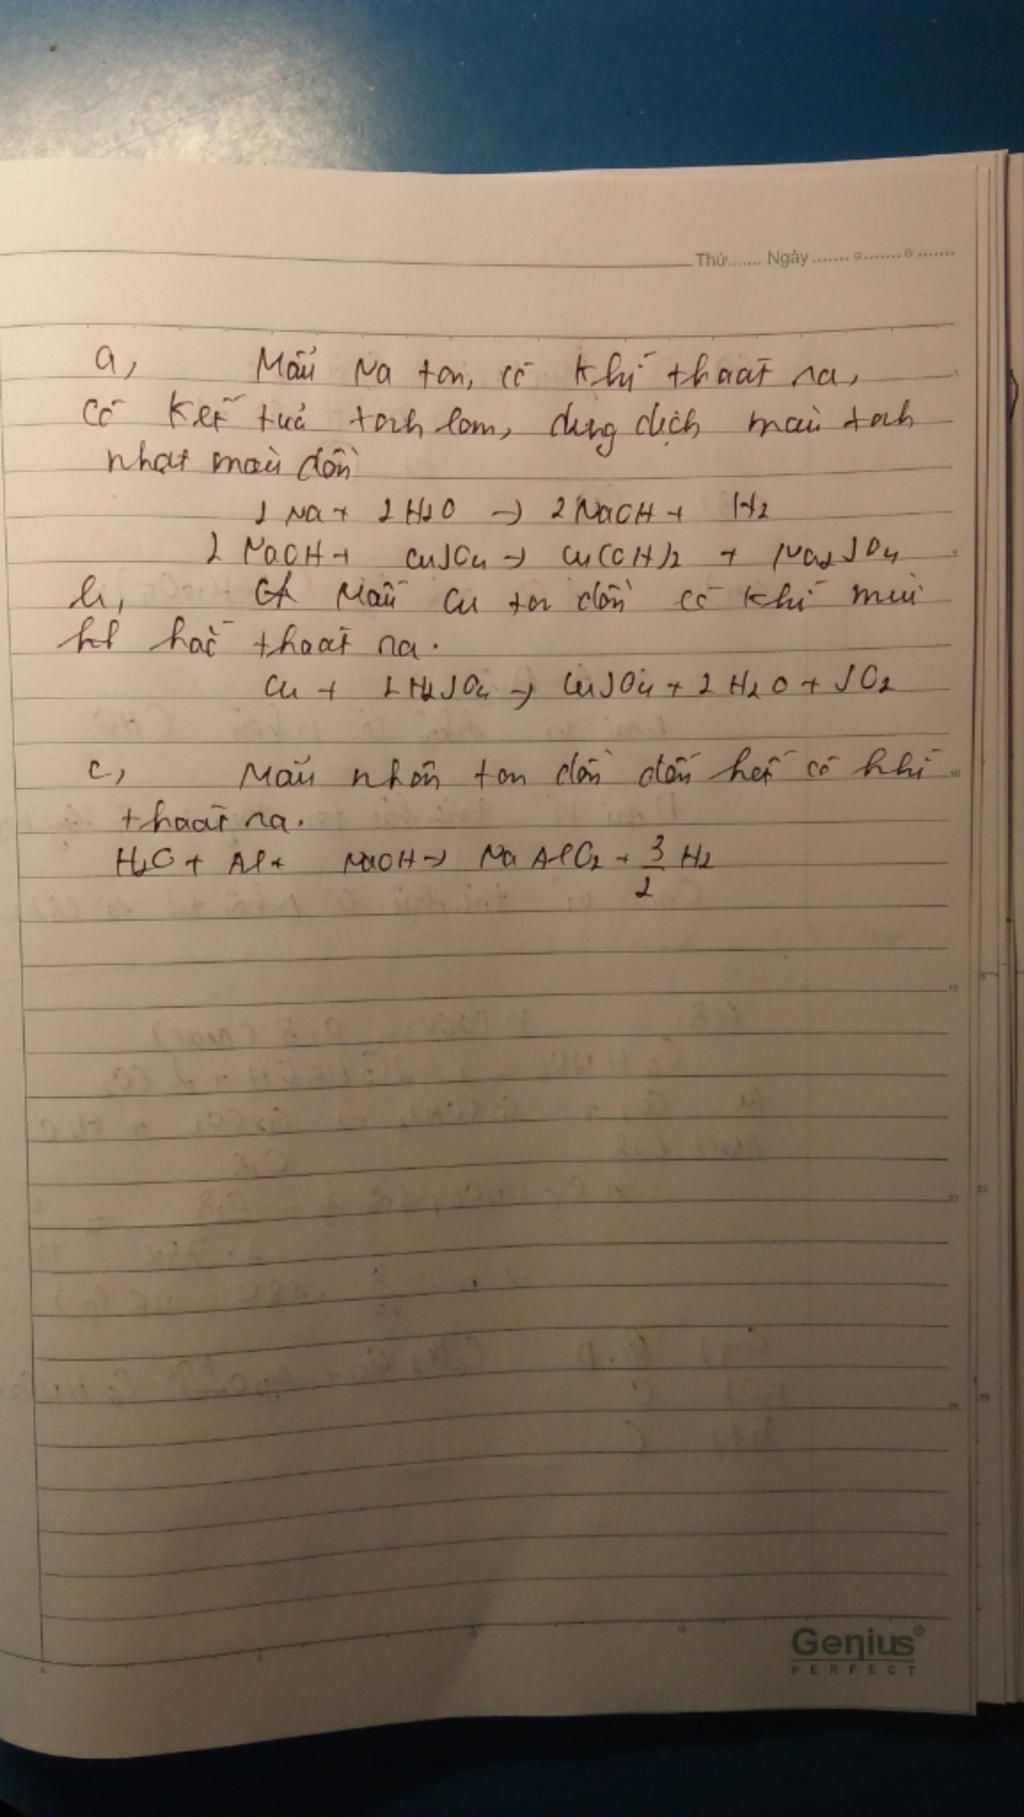 Thứ....... Ngày ....... o ....... o .......
a, Mẩu Na tan, có khí thoát ra,
có kết tủa xanh lam, dung dịch màu xanh
nhạt màu dần
2 Na + 2 H2O → 2 NaOH + H2
2 NaOH + CuSO4 → Cu(OH)2 + Na2SO4
b, Mẩu Cu tan dần có khí mùi
hắc thoát ra.
Cu + 2 H2SO4 → CuSO4 + 2 H2O + SO2
c, Mẩu nhôm tan dần đến hết có khí
thoát ra.
H2O + Al + NaOH → NaAlO2 + 3/2 H2
Genius
PERFECT